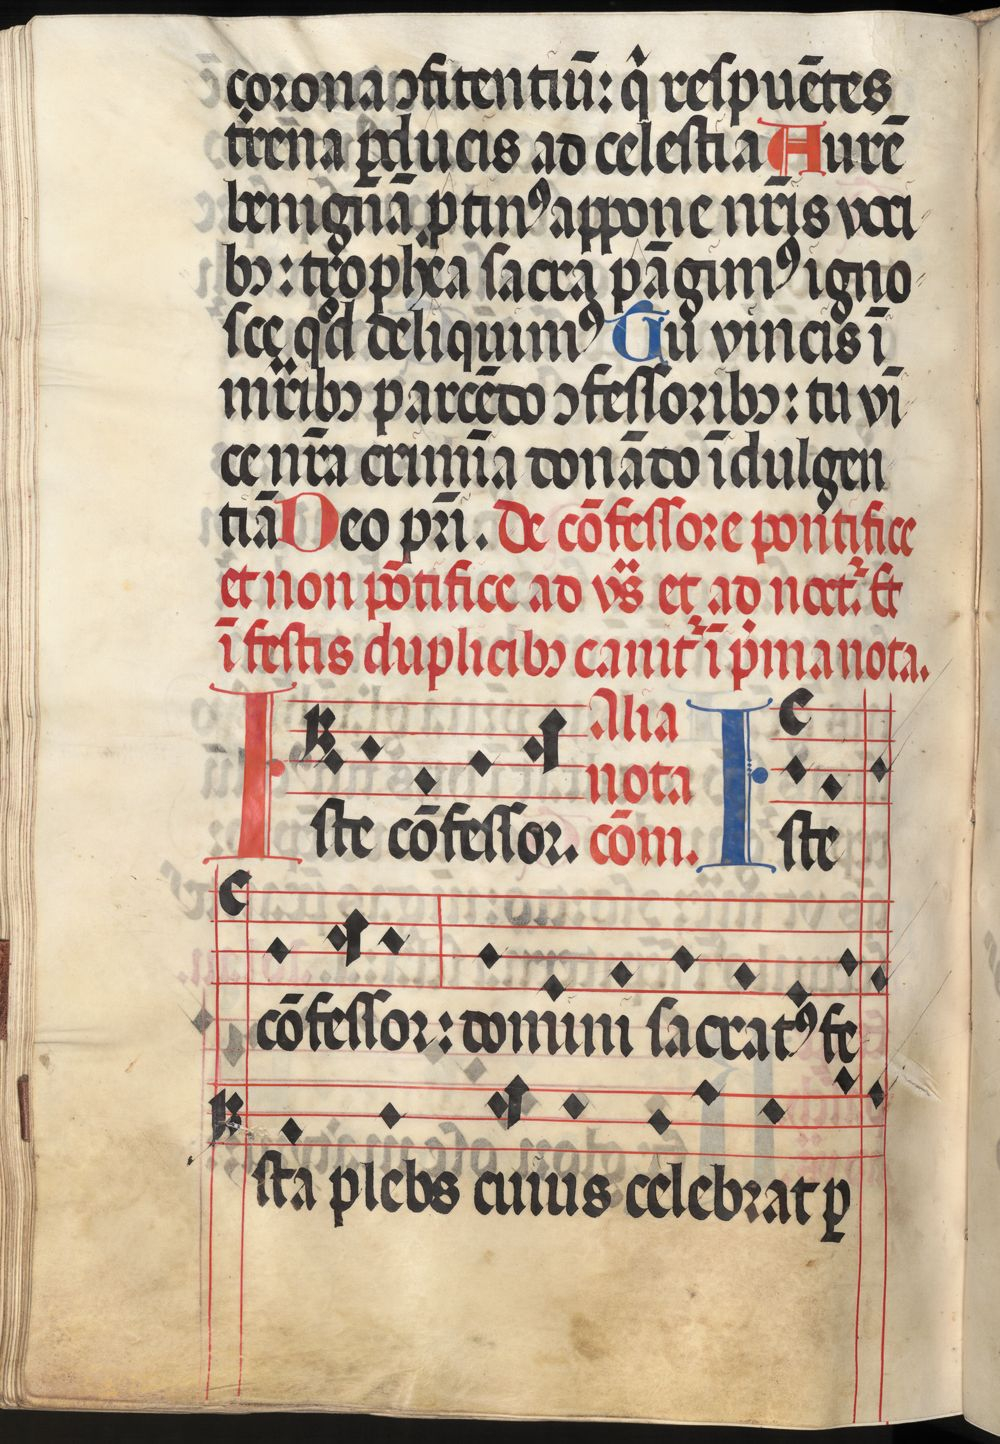 corona ↄfitentiū: q̇ respuētes
t̓rena ꝑducis ad celestia Aurē
benignā ꝓtinꝰ appone nr̄is voci
bꝫ: trophea sacra pāgimꝰ igno
sce qd̓ deliquimꝰ Tu vincis ī
mr̄ibꝫ parcēdo ↄfessoribꝫ: tu vī
ce nr̄a crimīa donādo īdulgen
tiā Deo pr̄i. De cōfessore pontifice
et non pōtifice ad vs̄ et ad noct᷑. Et
ī festis duplicibꝫ canit᷑ ī p̓ma nota.
Iste cōfessor. Alia nota cōm. Iste
cōfessor: domini sacratꝰ fe
sta plebs cuius celebrat ꝑ